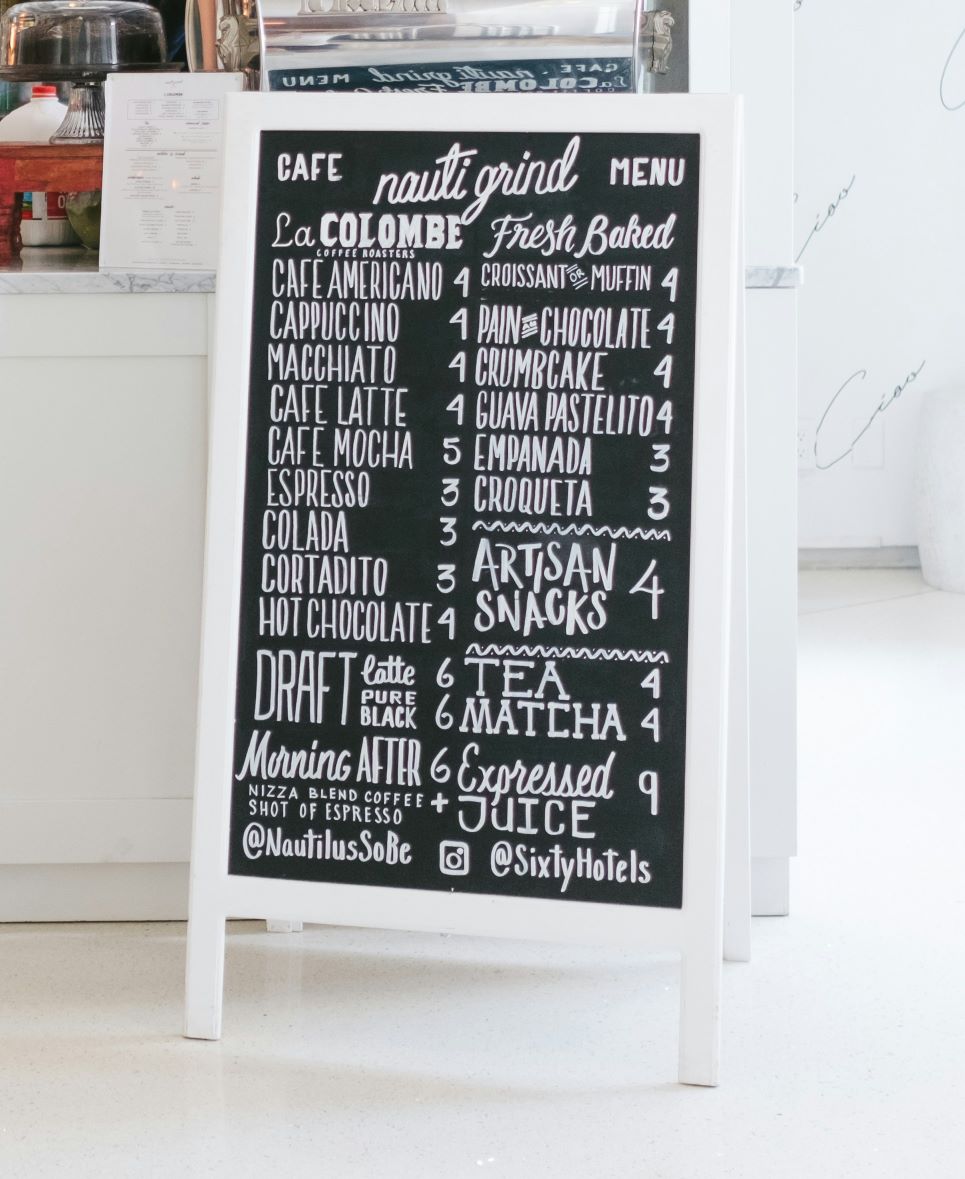 CAFE nauti grind MENU
La COLOMBE
COFFEE ROASTERS
CAFE AMERICANO 4
CAPPUCCINO 4
MACCHIATO 4
CAFE LATTE 4
CAFE MOCHA 5
ESPRESSO 3
COLADA 3
CORTADITO 3
HOT CHOCOLATE 4
DRAFT latte 6
PURE BLACK 6
Morning AFTER 6
NIZZA BLEND COFFEE +
SHOT OF ESPRESSO
Fresh Baked
CROISSANT OR MUFFIN 4
PAIN AU CHOCOLATE 4
CRUMBCAKE 4
GUAVA PASTELITO 4
EMPANADA 3
CROQUETA 3
ARTISAN
SNACKS 4
TEA 4
MATCHA 4
Expressed
JUICE 9
@NautilusSoBe @SixtyHotels
Ciao
Ciao